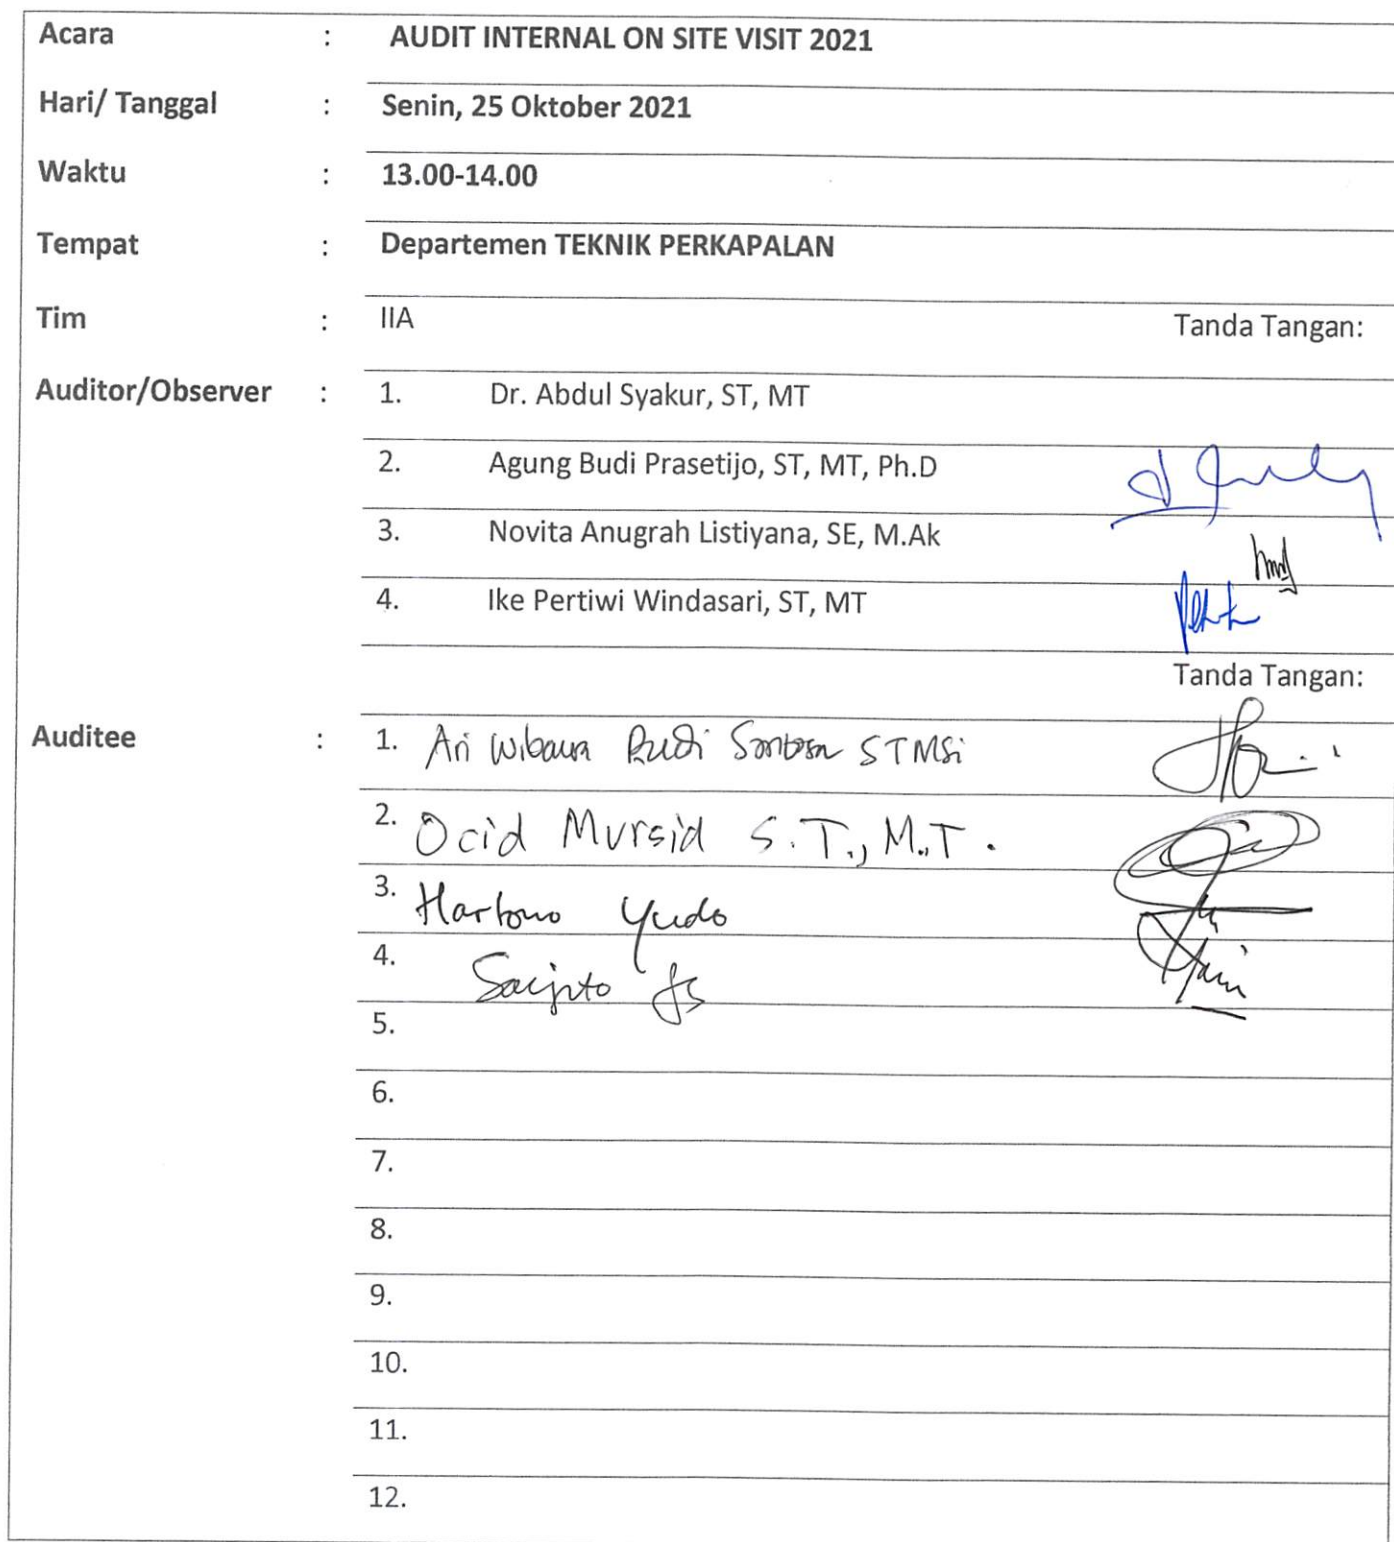 Acara : AUDIT INTERNAL ON SITE VISIT 2021
Hari/ Tanggal : Senin, 25 Oktober 2021
Waktu : 13.00-14.00
Tempat : Departemen TEKNIK PERKAPALAN
Tim : IIA Tanda Tangan:
Auditor/Observer : 1. Dr. Abdul Syakur, ST, MT
2. Agung Budi Prasetijo, ST, MT, Ph.D
3. Novita Anugrah Listiyana, SE, M.Ak
4. Ike Pertiwi Windasari, ST, MT
Tanda Tangan:
Auditee : 1. Ari Wibawa Budi Santosa ST MSi
2. Ocid Mursid S.T., M.T.
3. Hartono Yudo
4.
5.
6.
7.
8.
9.
10.
11.
12.